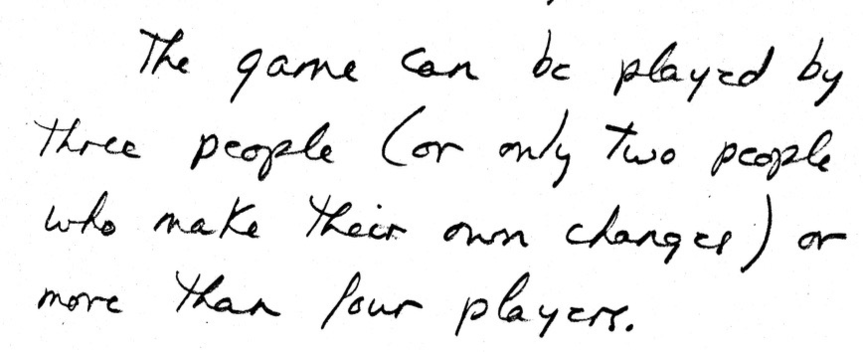 The game can be played by
three people (or only two people
who make their own changes) or
more than four players.